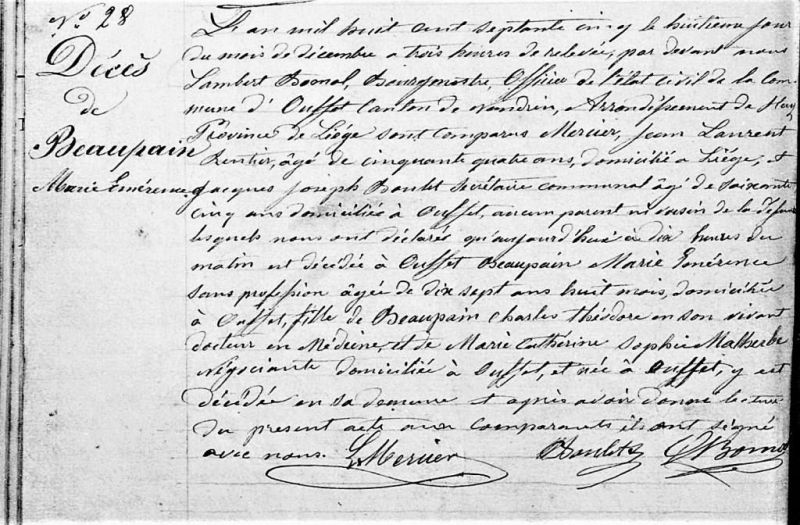 N.° 28
Décès
de
Beaupain
Marie Emérence
L'an mil huit cent septante cinq le huitième jour
du mois de décembre a trois heures de relevée, par devant nous
Lambert Bonnol, Bourgmestre, Officier de l'état civil de la Com-
mune d'Ouffet Canton de Nandrin, Arrondissement de Huy
Province de Liège sont comparus Mercier, Jean Laurent
Rentier, âgé de cinquante quatre ans, domicilié a Liége, et
Jacques Joseph Boulet Secrétaire communal âgé de soixante
cinq ans domiciliée à Ouffet, aucun parent ni voisin de la défunte
lesquels nous ont déclaré qu'aujourd'hui à dix heures du
matin est décédée à Ouffet Beaupain Marie Emérence
sans profession âgée de dix sept ans huit mois, domiciliée
à Ouffet, fille de Beaupain Charles Théodore en son vivant
docteur en Médecine, et de Marie Cathérine Sophie Malherbe
négociante domiciliée à Ouffet, et née à Ouffet, y est
décédée en sa demeure et après avoir donné lecture
du present acte aux comparants ils ont signé
avec nous. L Mercier Boulet